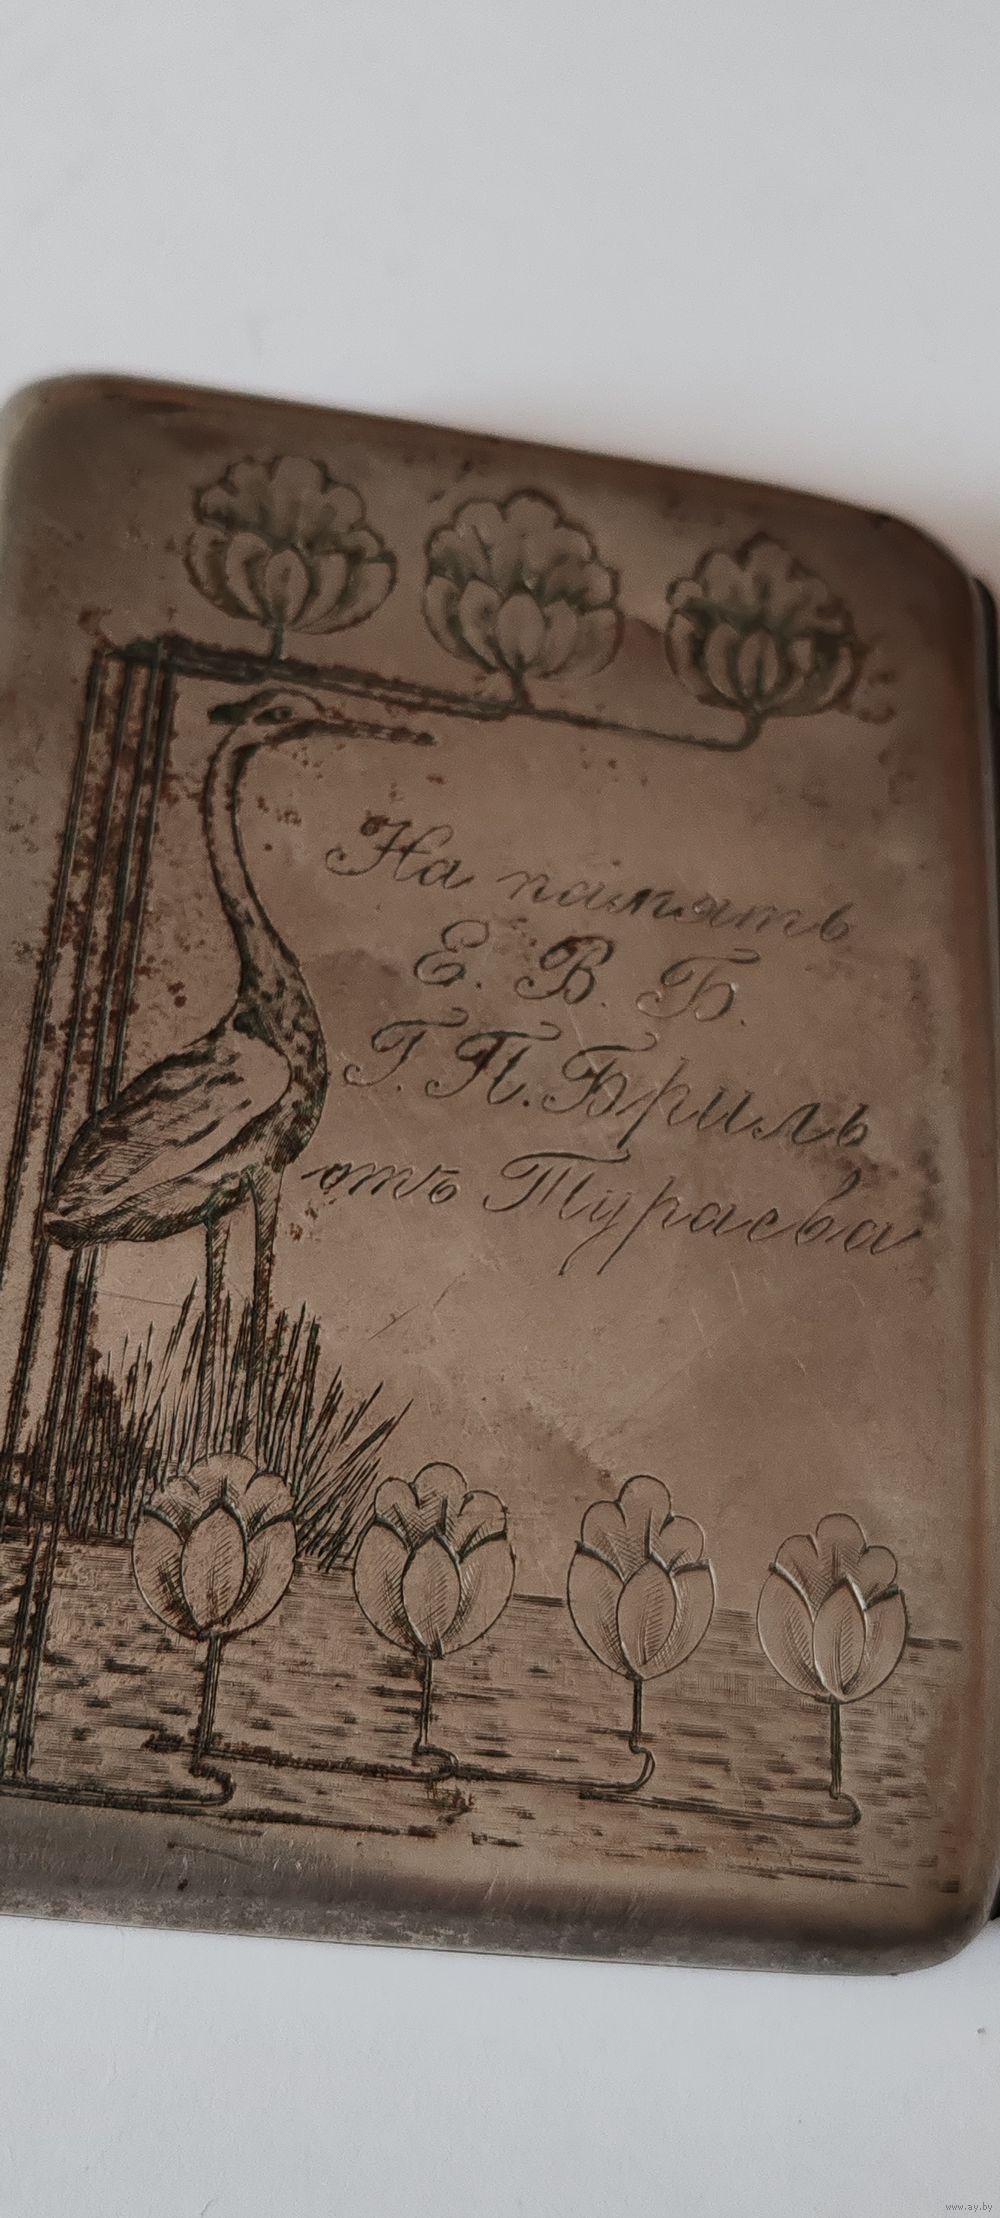 На память
Е. В. Б.
Г. П. Бриль
отъ Тураева
www.ay.by